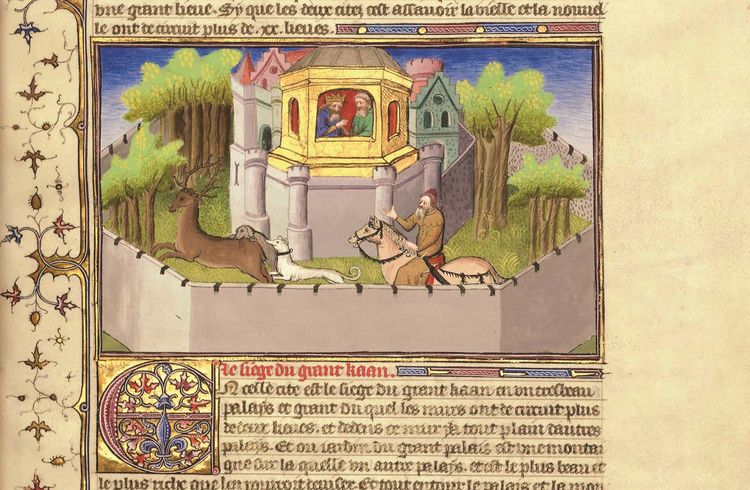 vne grant lieue. Sy que les deux citez cest assauoir la viesse et la nouuel
le ont de circuit plus de .xx. lieues.
Le siege du grant kaan.
En celle cite est le siege du grant kaan en vn tresbeau
palays et grant du quel les murs ont de circuit plus
de deux lieues. et dedens ce mur ya tout plain dautres
palays. Et ou iardin du grant palais est vne montai
gne sur la quelle vn autre palays. et est le plus beau et
le plus riche que len pourroit deuiser. Et tout entour le palais et la mon